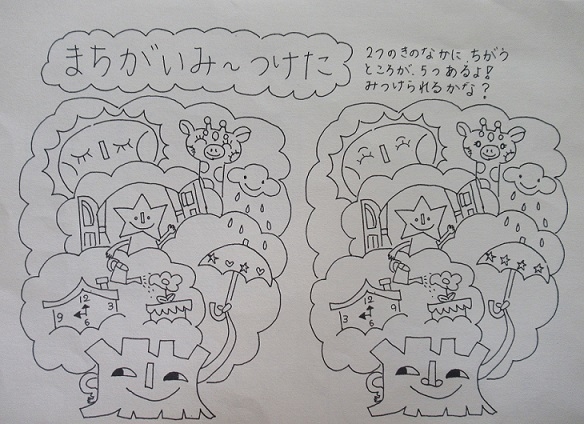 まちがいみ～つけた
2つのきのなかに ちがう
ところが、5つあるよ!
みつけられるかな?
12
9 3
6
12
3 9
6